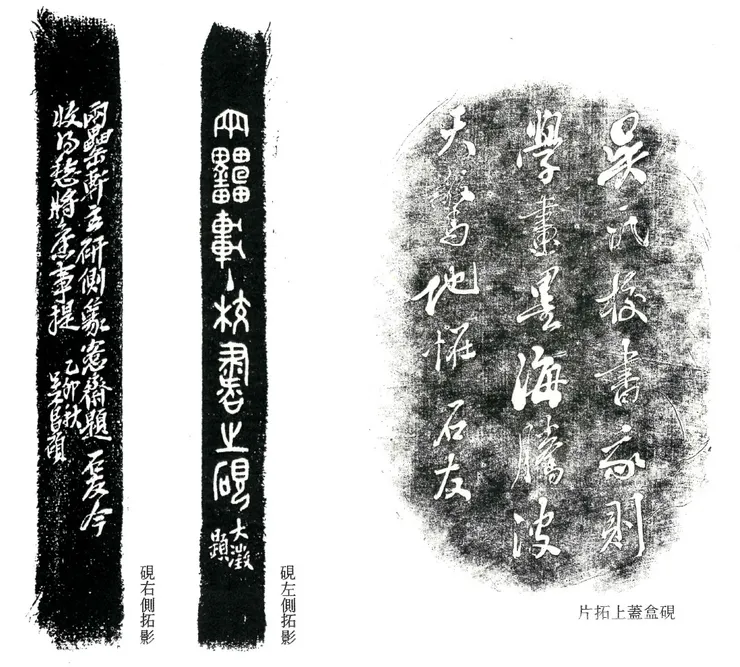 吳氏校書我則
學畫墨海騰波
天驚地怪石友
硯盒蓋上拓片
兩罍軒校書之硯
大澂
題
硯左側拓影
兩罍軒主研側篆愙齋題石友今
收得愁將事提
乙卯秋
吳昌碩
硯右側拓影